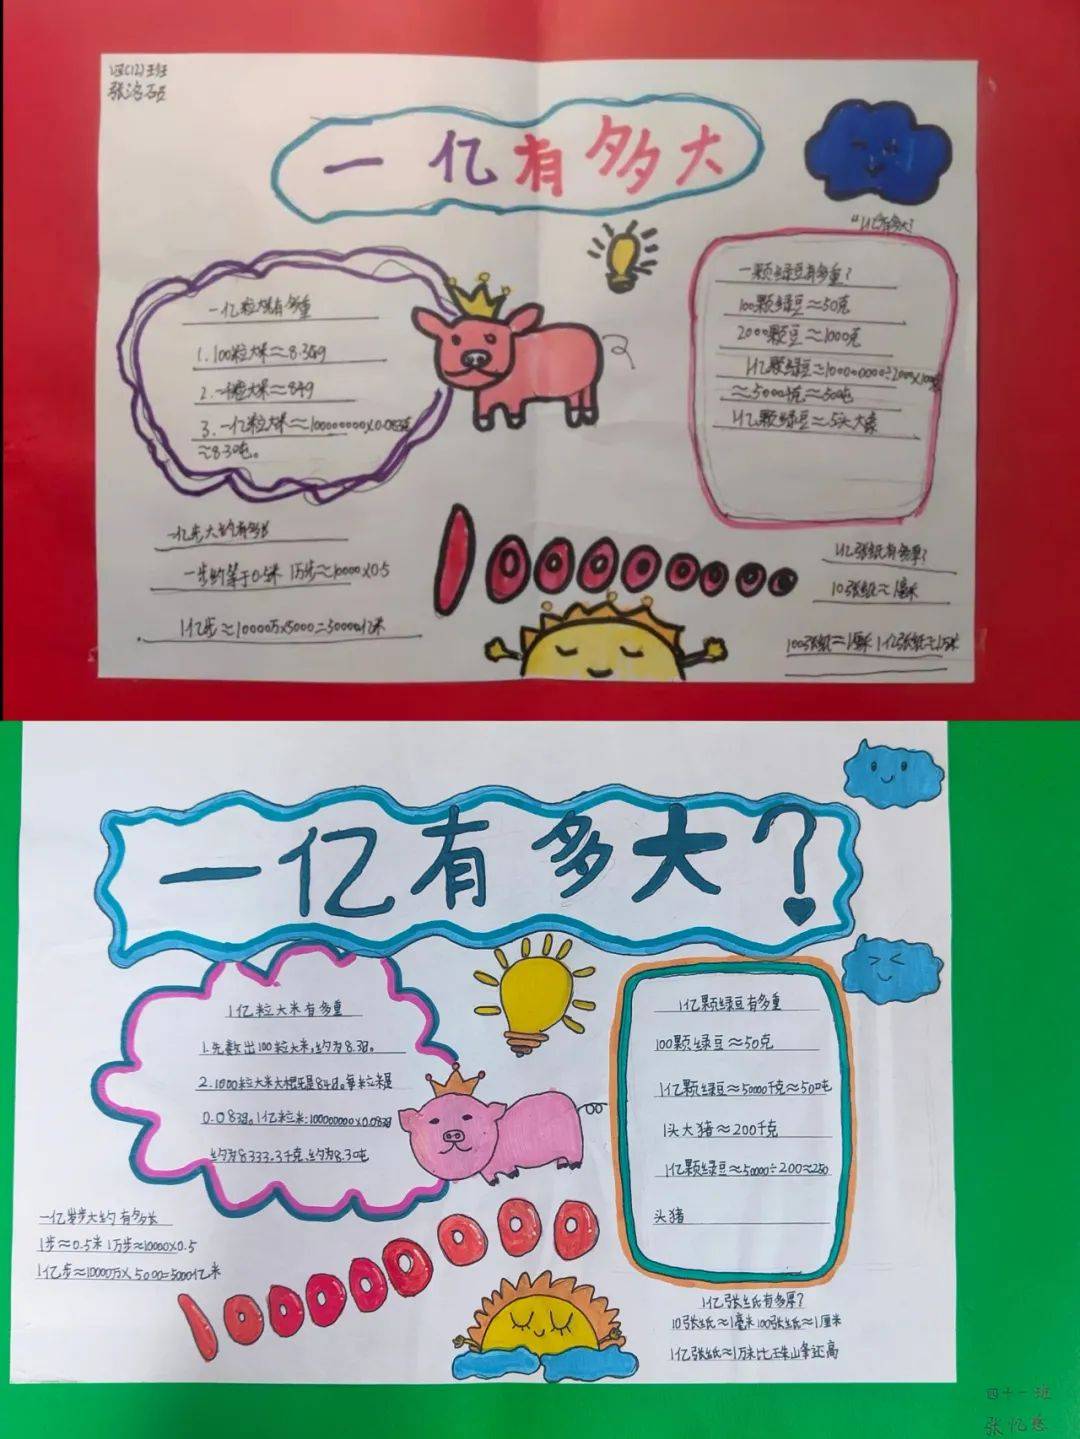 四(12)班
一亿有多大
"1亿有多大?
一亿粒大米有多重
1.100粒大米≈8.3g
≈8.30吨。
一颗绿豆有多重?
100颗绿豆≈50克
2000颗豆≈1000克
1亿颗绿豆≈100000000÷2000×1000
≈5000千克≈50吨
1亿颗绿豆≈5头大象
一亿步大约有多长
一步约等于0.5米 1万步≈10000×0.5
1亿步≈10000万×5000=50000亿米
100000000
1亿张纸有多厚?
10张纸≈1毫米
100张纸≈1厘米 1亿张纸≈1万米
一亿有多大?
1亿粒大米有多重
1.先数出100粒大米,约为8.3g。
2.1000粒大米大概是84g。每粒米是
0.083g。1亿粒米:100000000×0.083g
约为8333.3千克、约为8.30吨
1亿颗绿豆有多重
100颗绿豆≈50克
1亿颗绿豆≈50000千克≈50吨
1头大猪≈200千克
1亿颗绿豆≈50000÷200≈250
头猪
一亿步大约有多长
1步≈0.5米 1万步≈10000×0.5
1亿步≈10000万×5000=5000亿米
100000000
1亿张纸有多厚?
10张纸≈1毫米 100张纸≈1厘米
1亿张纸≈1万米比珠峰还高
四十一班